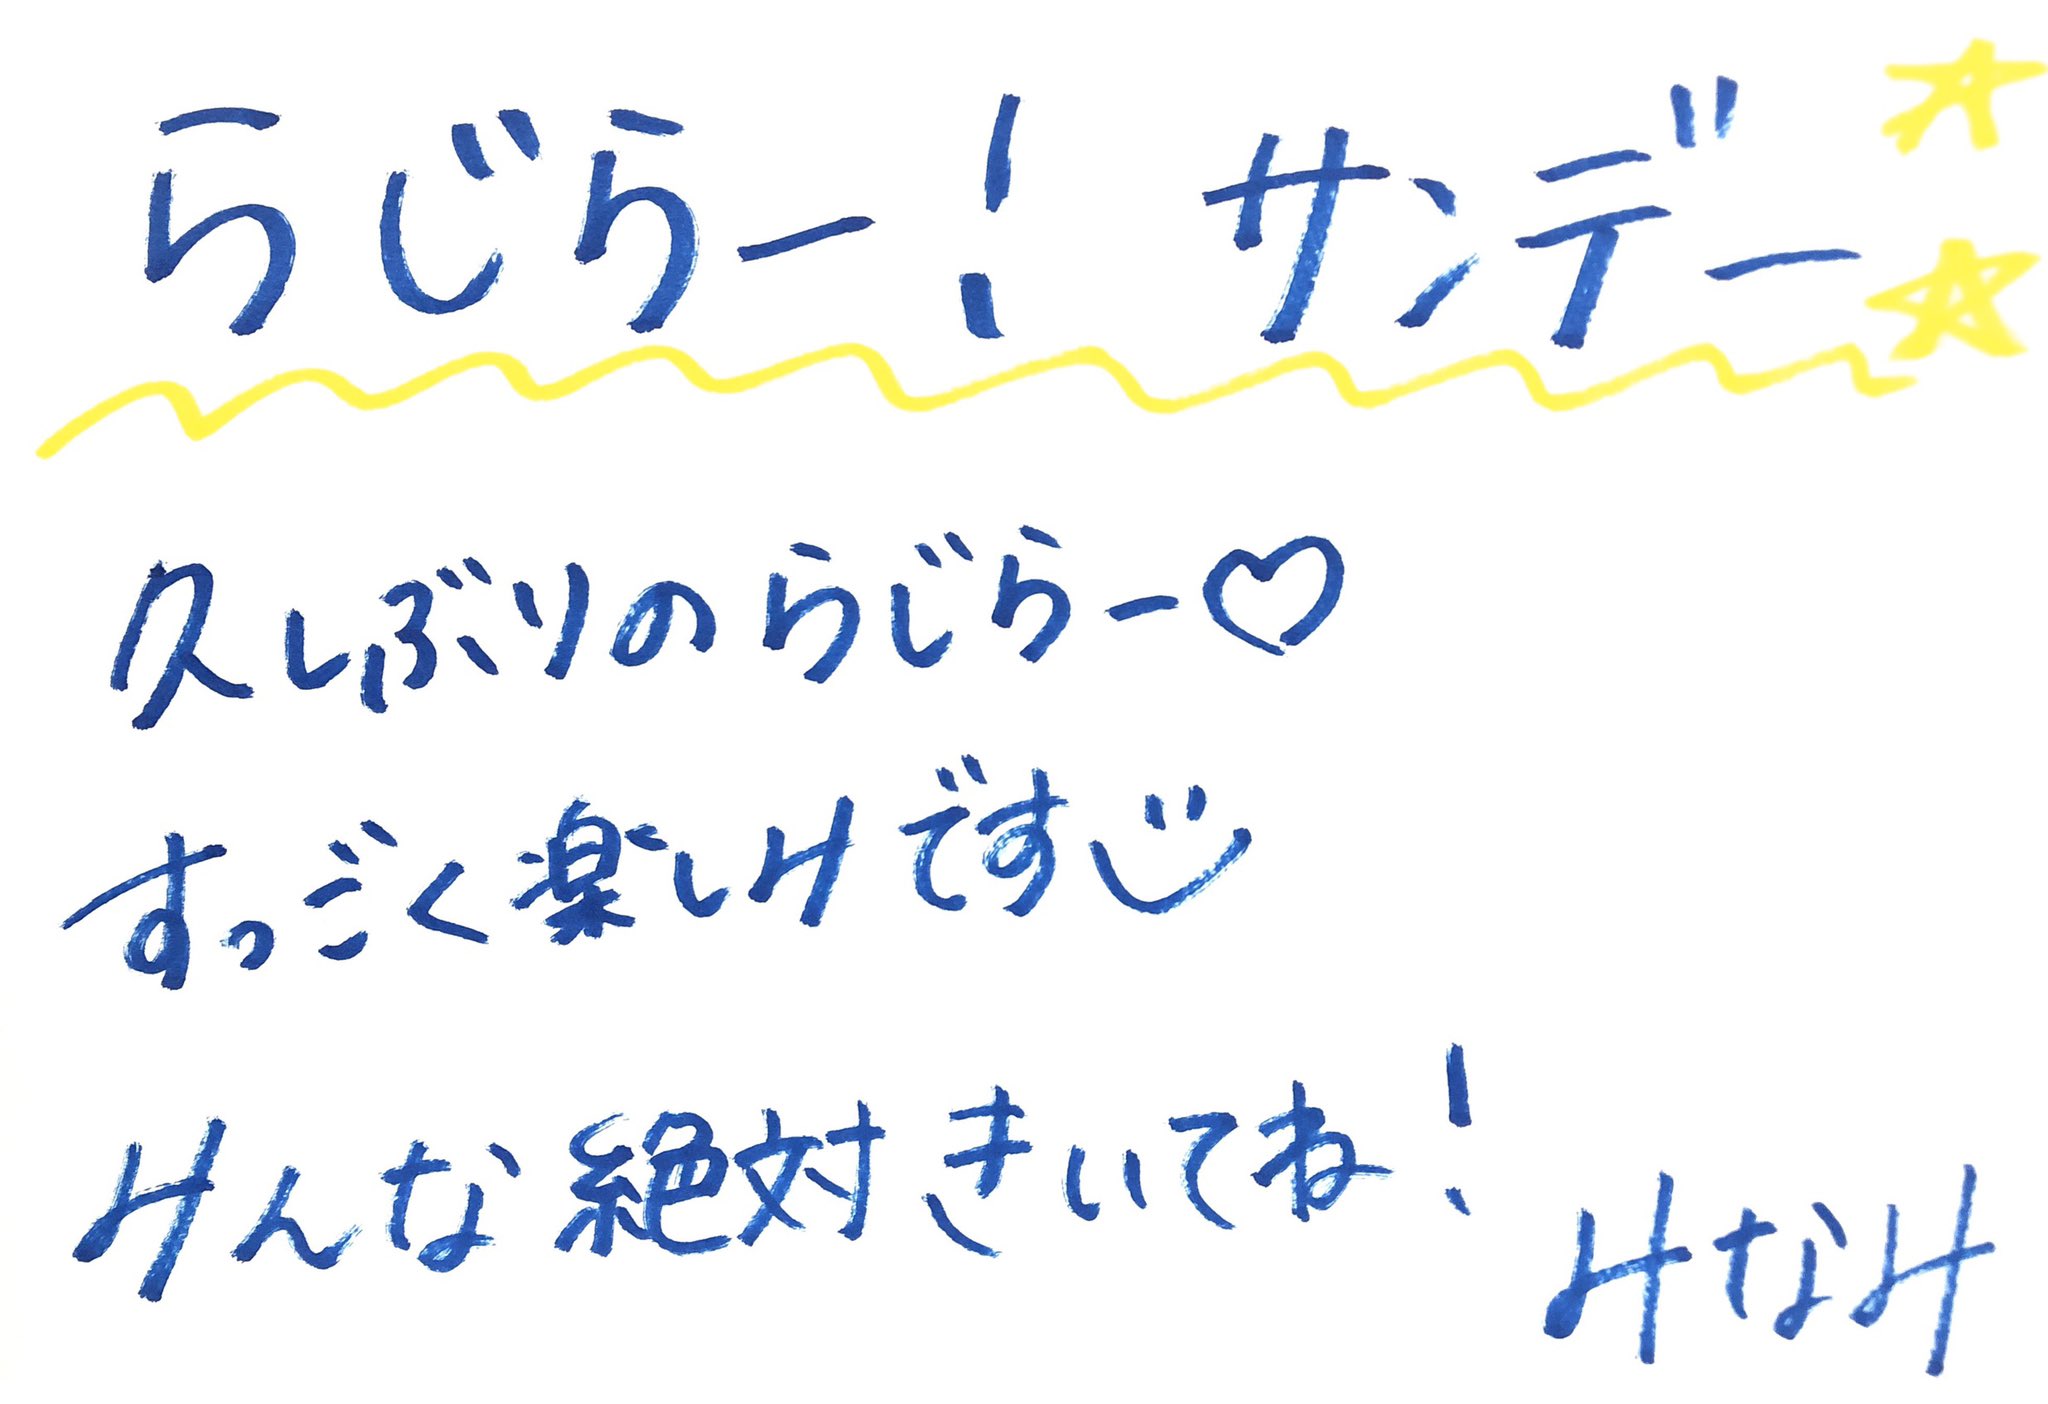 らじらー！ サンデー☆☆
久しぶりのらじらー♡
すっごく楽しみです
みんな絶対きいてね！
みなみ